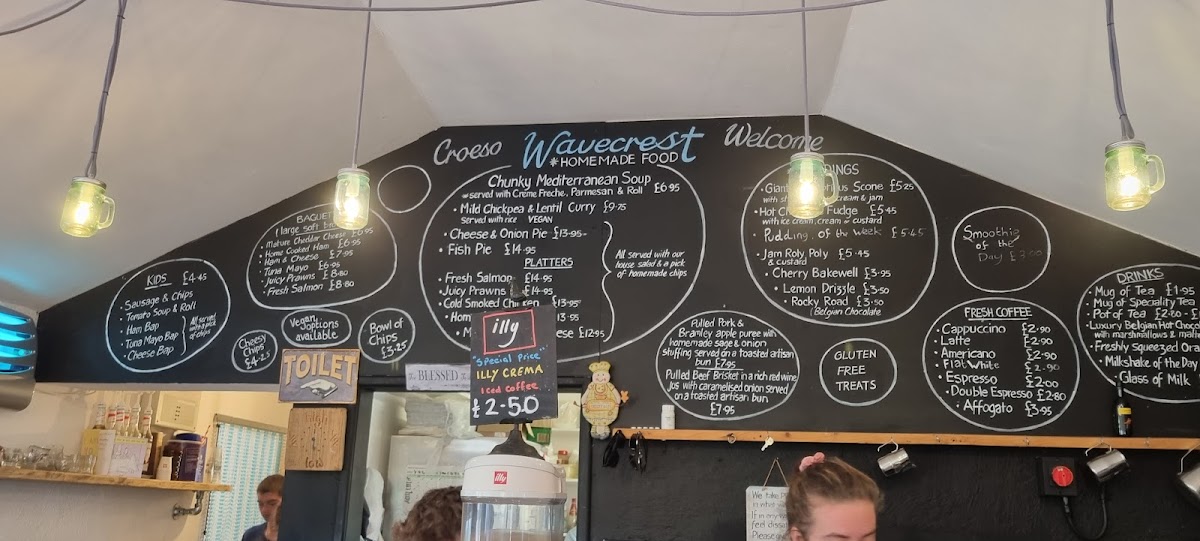 Croeso Wavecrest Welcome
*HOMEMADE FOOD
KIDS £4.45
• Sausage & Chips
• Tomato Soup & Roll
• Ham Bap
• Tuna Mayo Bap
• Cheese Bap
All served with a pick of chips
1 large soft
• Mature Cheddar Cheese £6.95
• Home Cooked Ham £6.95
• Ham & Cheese £7.95
• Tuna Mayo £6.95
• Juicy Prawns £8.80
• Fresh Salmon £8.80
Cheesy
Chips
£4.25
Vegan
options
available
Bowl of
Chips
£3.25
Chunky Mediterranean Soup
served with Creme Freche, Parmesan & Roll £6.95
• Mild Chickpea & Lentil Curry £9.75
Served with rice VEGAN
• Cheese & Onion Pie £13.95
• Fish Pie £14.95
PLATTERS
• Fresh Salmon £14.95
• Juicy Prawns £14.95
• Cold Smoked Chicken £13.95
£13.95
£12.95
All served with our
house salad & a pick
of homemade chips
Scone £5.25
cream & jam
Fudge £5.45
with ice cream, cream or custard
• Pudding of the week £5.45
• Jam Roly Poly £5.45
& custard
• Cherry Bakewell £3.95
• Lemon Drizzle £3.50
• Rocky Road £3.50
Belgian Chocolate
Pulled Pork &
Bramley apple puree with
homemade sage & onion
stuffing served on a toasted artisan
bun £7.95
Pulled Beef Brisket in a rich red wine
Jus with caramelised onion served
on a toasted artisan bun.
£7.95
GLUTEN
FREE
TREATS
Smoothie
of the
Day
FRESH COFFEE
• Cappuccino £2.90
• Latte £2.90
• Americano £2.90
• Flat White £2.90
• Espresso £2.00
• Double Espresso £2.80
• Affogato £3.95
DRINKS
• Mug of Tea £1.95
• Mug of Speciality Tea
• Pot of Tea £2.80
• Luxury Belgian Hot
with marshmallows &
• Freshly Squeezed
• Milkshake of the Day
• Glass of Milk
TOILET
The BLESSED
illy
"Special Price"
ILLY CREMA
Iced coffee
£2.50
illy
We take